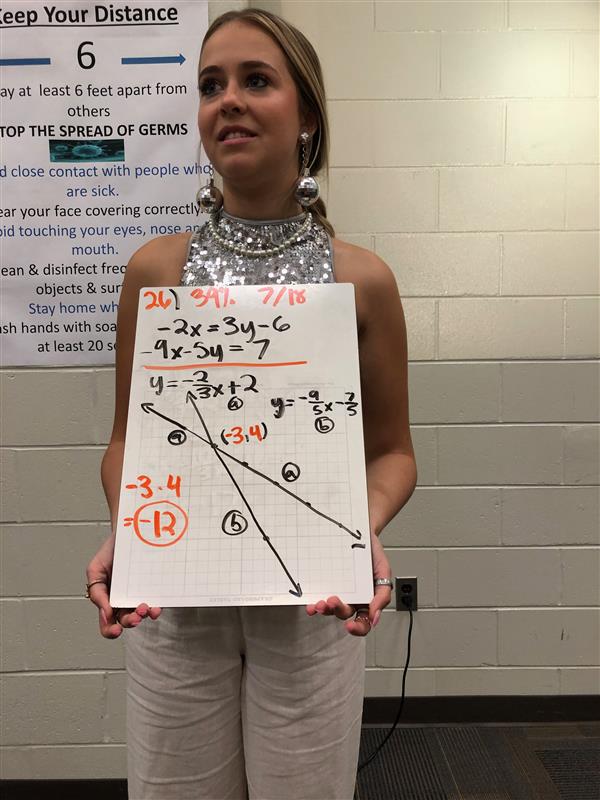 Keep Your Distance
6
ay at least 6 feet apart from
others
TOP THE SPREAD OF GERMS
d close contact with people who
are sick.
ear your face covering correctly.
oid touching your eyes, nose an
mouth.
ean & disinfect freq
objects & sur
Stay home wh
ash hands with soa
at least 20 se
26) 39% 7/18
-2x=3y-6
-9x-5y= 7
y=-2/3x+2
a
y=-9/5x-7/5
b
(-3,4)
a
a
b
-3·4
=-12